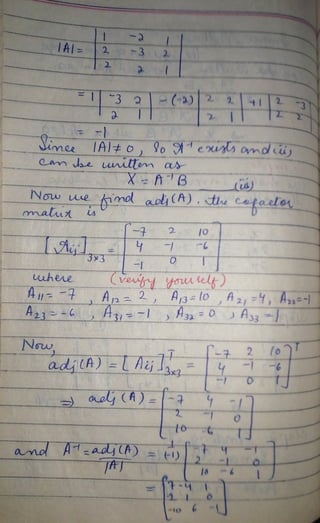 |A| = | 1 -2 1 |
| 2 -3 2 |
| 2 2 1 |
= 1 | -3 2 | - (-2) | 2 2 | + 1 | 2 -3 |
| 2 1 | | 2 1 | | 2 2 |
= -1
Since |A| ≠ 0, So A⁻¹ exists and (ii)
can be written as
X = A⁻¹ B
(iii)
Now we find adj(A). the cofactor
matrix is
[Aij]3×3 = [ -7 2 10 ]
[ 4 -1 -6 ]
[ -1 0 1 ]
where (verify yourself)
A11 = -7, A12 = 2, A13 = 10, A21 = 4, A22 = -1
A23 = -6, A31 = -1, A32 = 0, A33 = 1
Now,
adj(A) = [Aij]ᵀ3×3 = [ -7 2 10 ]ᵀ
[ 4 -1 -6 ]
[ -1 0 1 ]
⇒ adj(A) = [ -7 4 -1 ]
[ 2 -1 0 ]
[ 10 6 1 ]
and A⁻¹ = adj(A) / |A| = 1/(-1) [ -7 4 -1 ]
[ 2 -1 0 ]
[ 10 -6 1 ]
= [ 7 -4 1 ]
[ -2 1 0 ]
[ -10 6 -1 ]